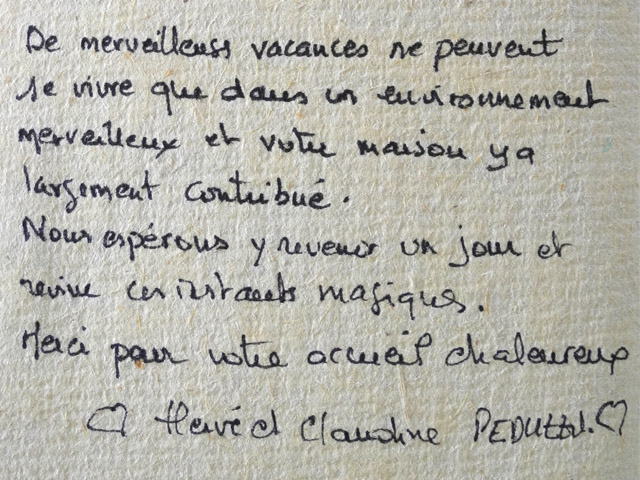 De merveilleuses vacances ne peuvent
se vivre que dans un environnement
merveilleux et votre maison y a
largement contribué.
Nous espérons y revenir un jour et
revivre ces instants magiques.
Merci pour votre accueil chaleureux
♡ Hervé et Claudine PEDUZZI. ♡